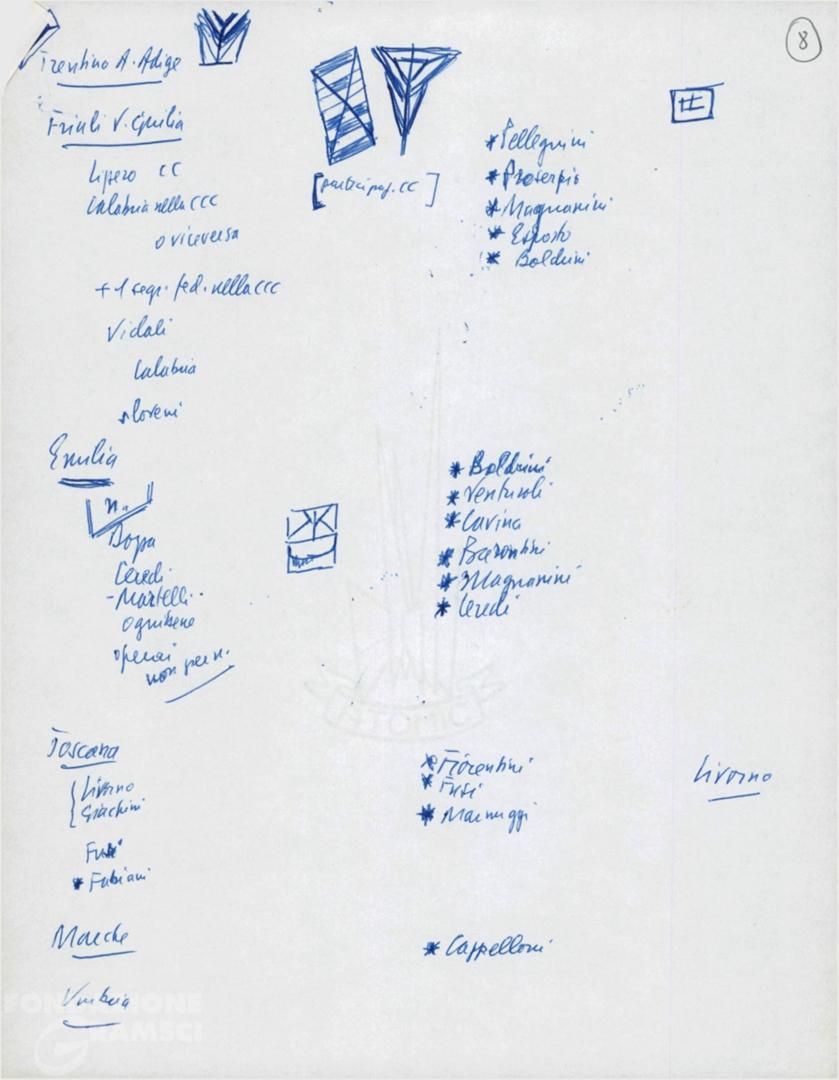 8
Trentino A. Adige
Friuli V. Giulia
Lipero CC
Calabria nella CCC
o viceversa
+ 1 segr. fed. nella CCC
Vidali
Calabria
sloveni
[particip. CC]
* Pellegrini
* Proserpio
* Magnanini
* Esposto
* Boldrini
Emilia
n.
Dopa
Ceredi
- Martelli
Ognibene
operai
non per n.
* Boldrini
* Venturoli
* Cavina
* Barontini
* Magnanini
* Ceredi
Toscana
Livorno
Giachini
Fusi
* Fabiani
* Fiorentini
* Fusi
* Marmuggi
Livorno
Marche
* Cappelloni
Umbria
ATOMIC
FONDAZIONE
GRAMSCI